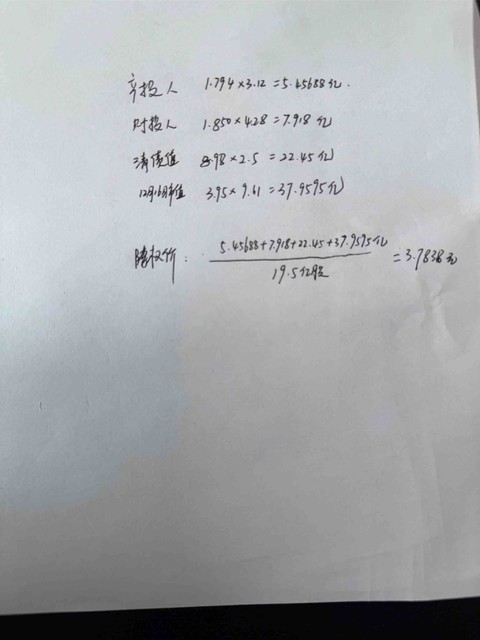 产投人 1.794×3.12=5.45688亿.
财投人 1.850×4.28=7.918亿
清偿值 8.98×2.5=22.45亿
12月16日市值 3.95×9.61=37.9595亿
除权价: 5.45688+7.918+22.45+37.9595亿
19.5亿股
=3.7838元